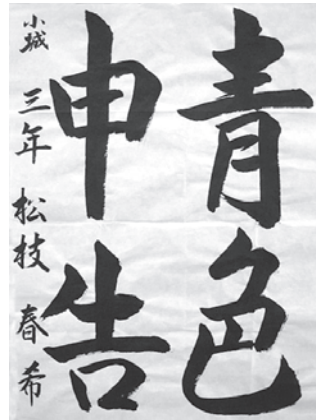 青色
申告
小城 三年 松枝 春希